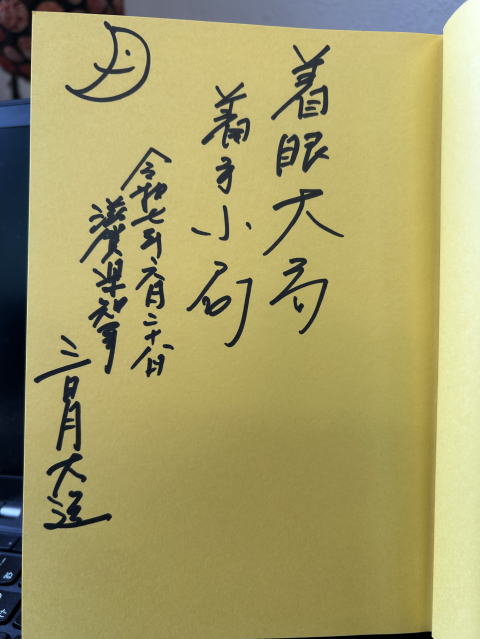 着眼大局
着手小局
令和七年六月二十八日
滋賀県知事
三日月大造